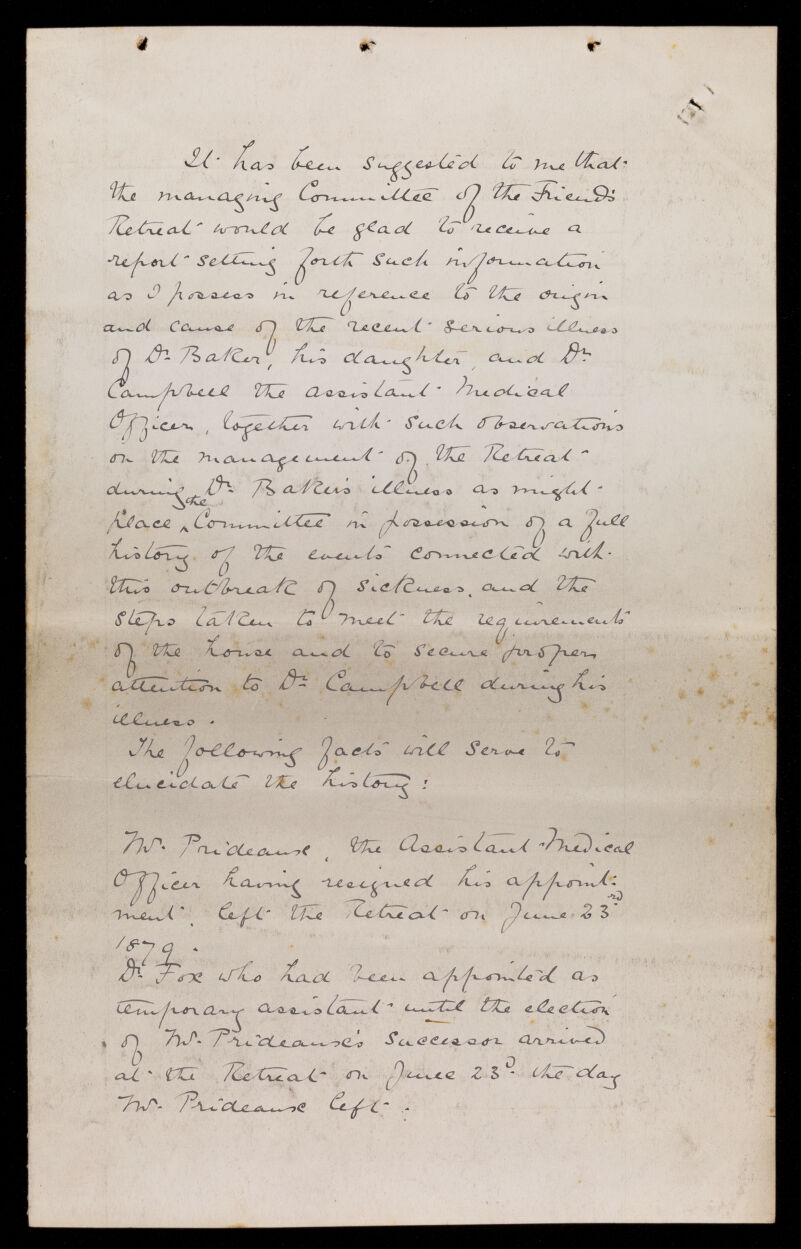 It has been suggested to me that
the managing Committee of the Friends'
Retreat would be glad to receive a
report setting forth such information
as I possess in reference to the origin
and cause of the recent serious illness
of Dr. Baker, his daughter, and Dr.
Campbell the assistant Medical
Officer, together with such observations
on the management of the Retreat
during Dr. Baker's illness as might
place ^the Committee in possession of a full
history of the events connected with
this outbreak of sickness, and the
steps taken to meet the requirements
of the house and to secure proper
attention to Dr. Campbell during his
illness.
The following facts will serve to
elucidate the history:
Mr. Prideaux, the Assistant Medical
Officer having resigned his appoint:
ment, left the Retreat on June 23rd
1879.
Dr. Fox who had been appointed as
temporary assistant until the election
of Mr. Prideaux's successor arrived
at the Retreat on June 23d. the day
Mr. Prideaux left.